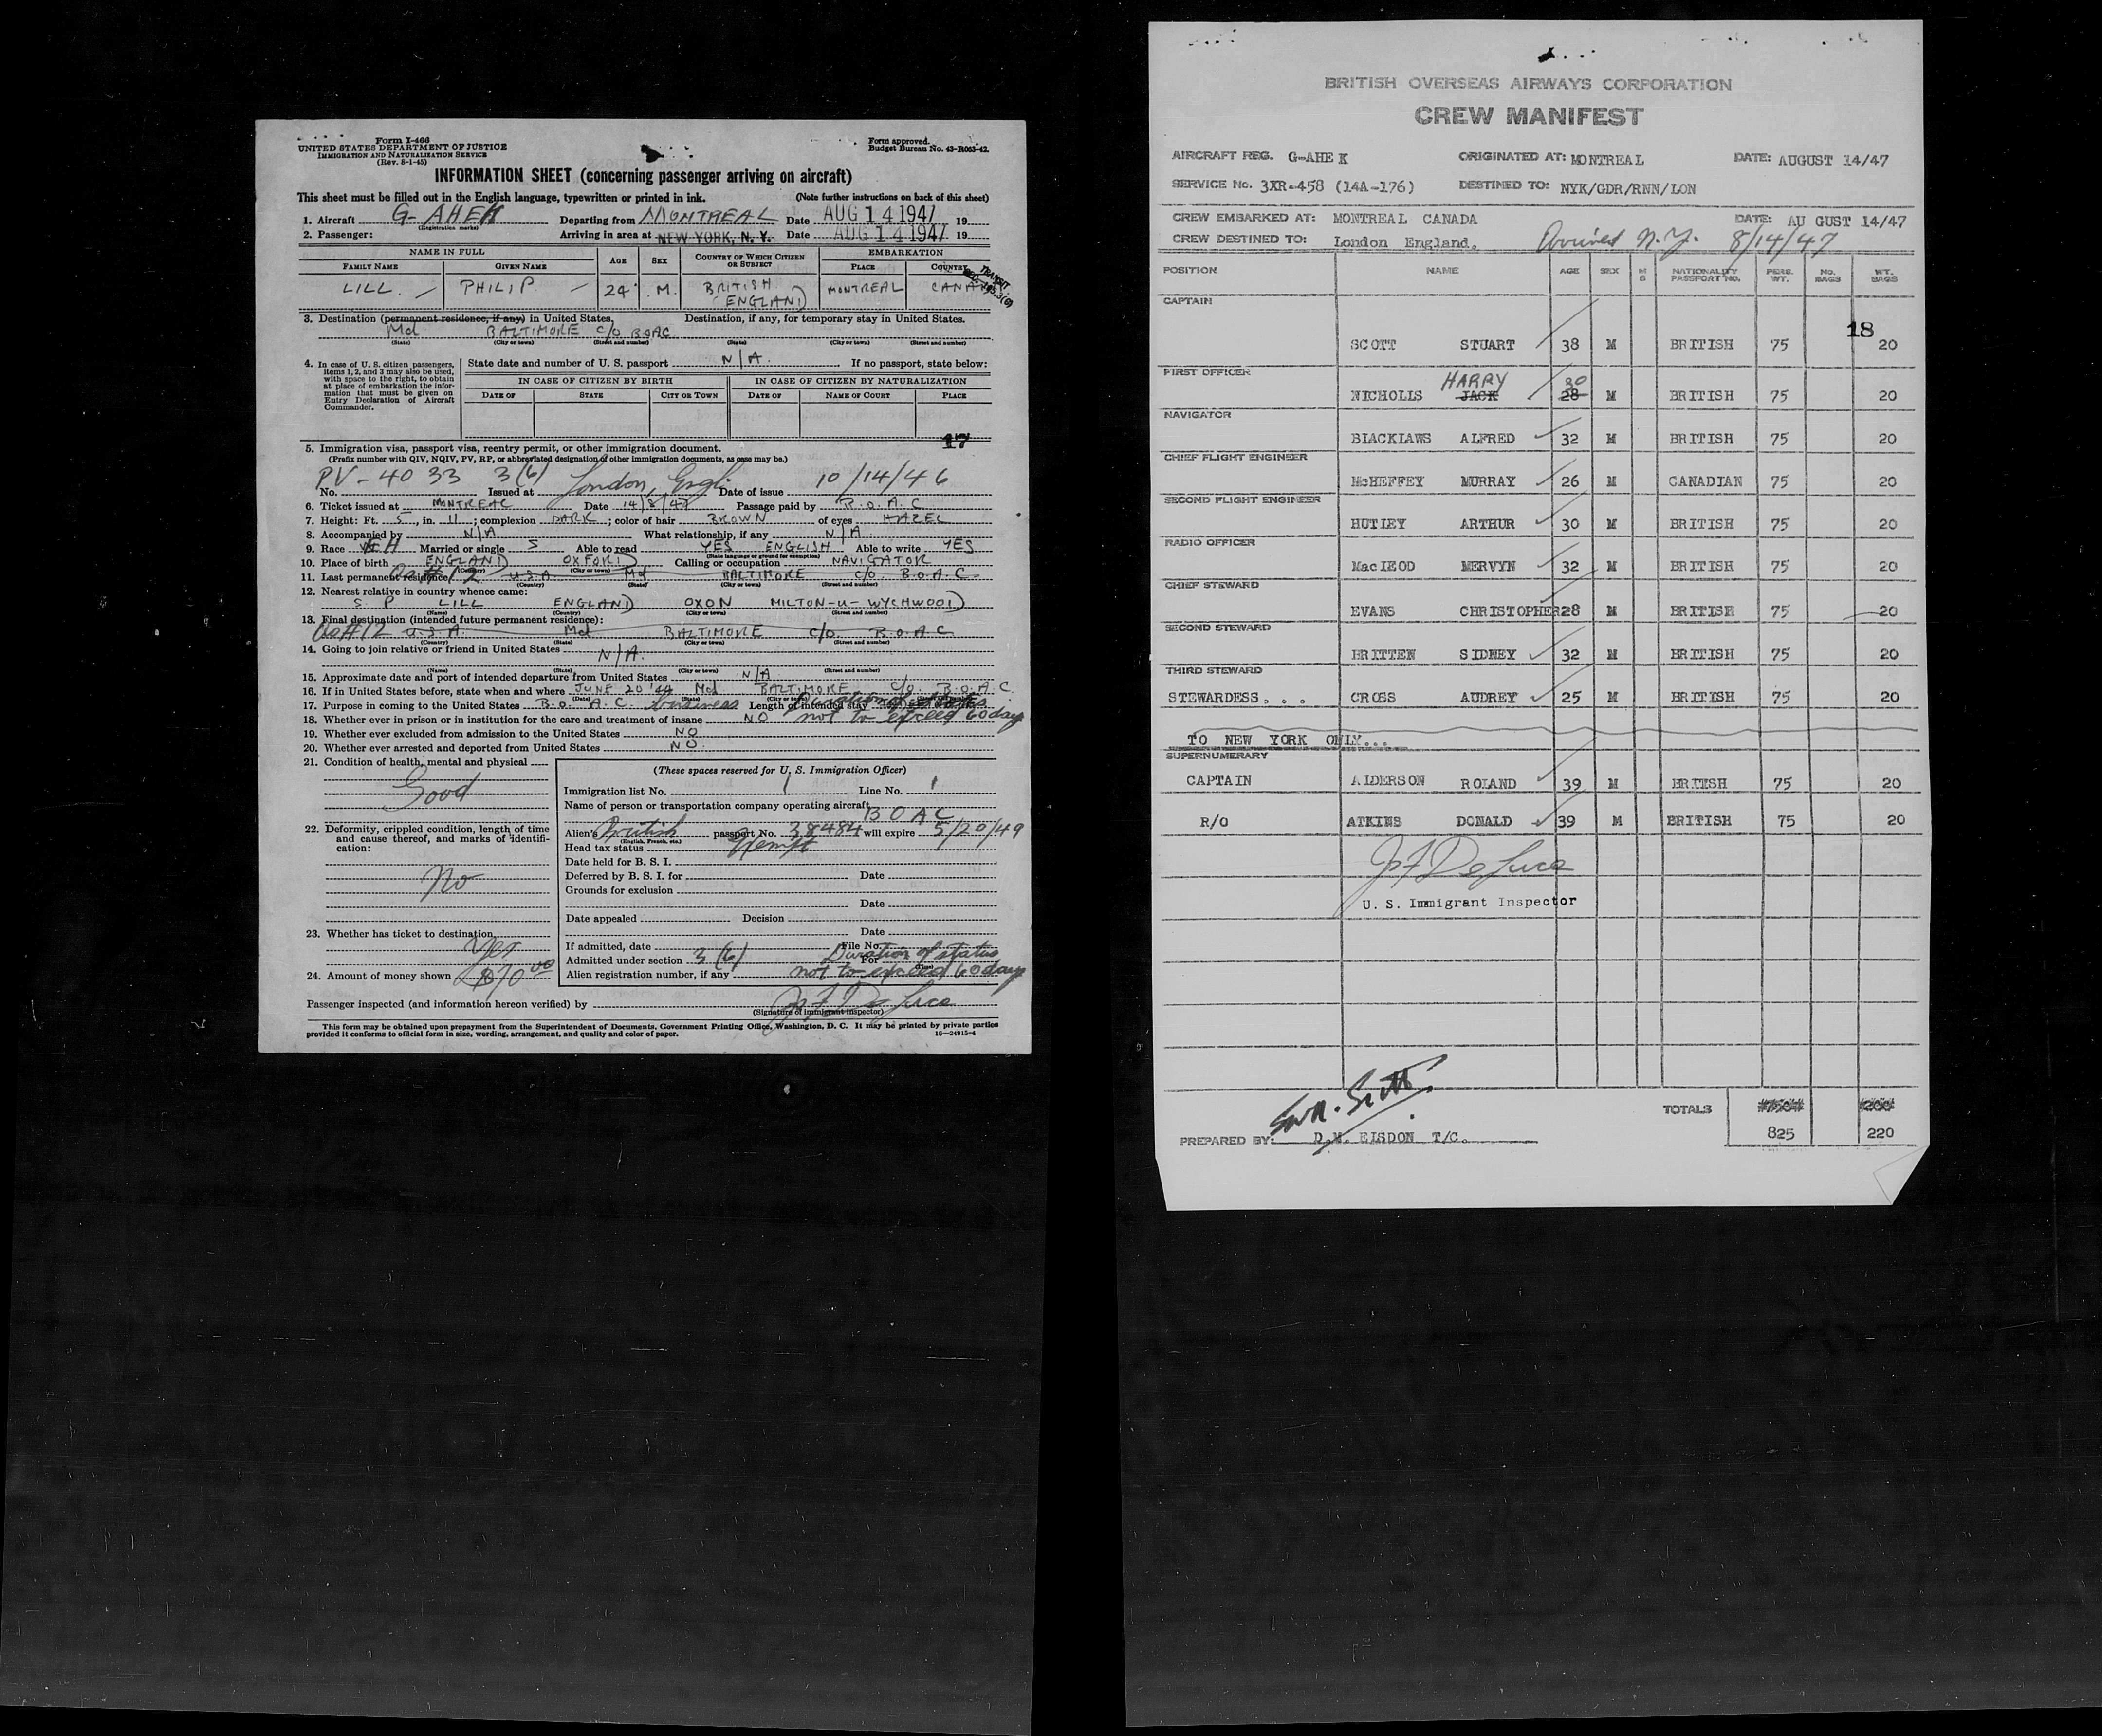 Form I-466
UNITED STATES DEPARTMENT OF JUSTICE
IMMIGRATION AND NATURALIZATION SERVICE
(Rev. 8-1-45)
Form approved.
Budget Bureau No. 43-R063-42.
INFORMATION SHEET (concerning passenger arriving on aircraft)
This sheet must be filled out in the English language, typewritten or printed in ink. (Note further instructions on back of this sheet)
1. Aircraft G-AHEK Departing from MONTREAL Date AUG 14 1947 19
(Registration marks)
2. Passenger: Arriving in area at NEW YORK, N. Y. Date AUG 14 1947 19
NAME IN FULL AGE SEX COUNTRY OF WHICH CITIZEN OR SUBJECT EMBARKATION
FAMILY NAME GIVEN NAME PLACE COUNTRY
LILL PHILIP 24 M. BRITISH (ENGLAND) MONTREAL CANADA
TRANSIT
3. Destination (permanent residence, if any) in United States. Destination, if any, for temporary stay in United States.
Md BALTIMORE c/o BOAC
(State) (City or town) (Street and number) (State) (City or town) (Street and number)
4. In case of U. S. citizen passengers, items 1, 2, and 3 may also be used, with space to the right, to obtain at place of embarkation the information that must be given on Entry Declaration of Aircraft Commander.
State date and number of U. S. passport N/A. If no passport, state below:
IN CASE OF CITIZEN BY BIRTH IN CASE OF CITIZEN BY NATURALIZATION
DATE OF STATE CITY OR TOWN DATE OF NAME OF COURT PLACE
17
5. Immigration visa, passport visa, reentry permit, or other immigration document.
(Prefix number with QIV, NQIV, PV, RP, or abbreviated designation of other immigration documents, as case may be.)
PV-4033 3(6) London, Engl. 10/14/46
No. Issued at Date of issue
6. Ticket issued at MONTREAL Date 14/8/47 Passage paid by B.O.A.C
7. Height: Ft. 5, in. 11; complexion DARK; color of hair BROWN of eyes HAZEL
8. Accompanied by N/A What relationship, if any N/A.
9. Race EH Married or single S Able to read YES ENGLISH Able to write YES
(State language or ground for exemption)
10. Place of birth ENGLAND OXFORD Calling or occupation NAVIGATOR
(Country) (City or town)
11. Last permanent residence U.S.A Md BALTIMORE c/o. B.O.A.C
(Country) (State) (City or town) (Street and number)
12. Nearest relative in country whence came:
S. P LILL ENGLAND OXON MILTON-U-WYCHWOOD
(Name) (Country) (City or town) (Street and number)
13. Final destination (intended future permanent residence):
U.S.A. Md BALTIMORE c/o. B.O.A.C
(Country) (State) (City or town) (Street and number)
14. Going to join relative or friend in United States N/A.
(Name) (State) (City or town) (Street and number)
15. Approximate date and port of intended departure from United States N/A
16. If in United States before, state when and where JUNE 20 '44 Md BALTIMORE c/o. B.O.A.C.
(Date) (State) (City or town) (Street and number)
17. Purpose in coming to the United States B.O.A.C. business Length of intended stay Duration of status
18. Whether ever in prison or in institution for the care and treatment of insane NO not to exceed 60 days
19. Whether ever excluded from admission to the United States NO
20. Whether ever arrested and deported from United States NO.
21. Condition of health, mental and physical
Good
22. Deformity, crippled condition, length of time and cause thereof, and marks of identification:
No
23. Whether has ticket to destination
Yes
24. Amount of money shown $70.00
(These spaces reserved for U. S. Immigration Officer)
Immigration list No. 1 Line No. 1
Name of person or transportation company operating aircraft BOAC
Alien's British passport No. 38484 will expire 5/20/49
(English, French, etc.)
Head tax status Exempt
Date held for B. S. I.
Deferred by B. S. I. for Date
Grounds for exclusion
Date
Date appealed Decision
Date
If admitted, date File No.
Admitted under section 3(6) For Duration of status
Alien registration number, if any not to exceed 60 days
Passenger inspected (and information hereon verified) by J F De Luca
(Signature of immigrant inspector)
This form may be obtained upon prepayment from the Superintendent of Documents, Government Printing Office, Washington, D. C. It may be printed by private parties
provided it conforms to official form in size, wording, arrangement, and quality and color of paper. 16—24915-4
BRITISH OVERSEAS AIRWAYS CORPORATION
CREW MANIFEST
AIRCRAFT REG. G-AHEK ORIGINATED AT: MONTREAL DATE: AUGUST 14/47
SERVICE No. 3XR-458 (14A-176) DESTINED TO: NYK/GDR/RNN/LON
CREW EMBARKED AT: MONTREAL CANADA DATE: AU GUST 14/47
CREW DESTINED TO: London England. Arrived N.Y. 8/14/47
POSITION NAME AGE SEX M S NATIONALITY PASSPORT NO. PERS. WT. NO. BAGS WT. BAGS
CAPTAIN
18
SCOTT STUART 38 M BRITISH 75 20
FIRST OFFICER
HARRY 30
NICHOLLS JACK 28 M BRITISH 75 20
NAVIGATOR
BLACKLAWS ALFRED 32 M BRITISH 75 20
CHIEF FLIGHT ENGINEER
McHEFFEY MURRAY 26 M CANADIAN 75 20
SECOND FLIGHT ENGINEER
HUTLEY ARTHUR 30 M BRITISH 75 20
RADIO OFFICER
MacLEOD MERVYN 32 M BRITISH 75 20
CHIEF STEWARD
EVANS CHRISTOPHER 28 M BRITISH 75 20
SECOND STEWARD
BRITTEN SIDNEY 32 M BRITISH 75 20
THIRD STEWARD
STEWARDESS. . . CROSS AUDREY 25 M BRITISH 75 20
TO NEW YORK ONLY...
SUPERNUMERARY
CAPTAIN ALDERSON ROLAND 39 M BRITISH 75 20
R/O ATKINS DONALD 39 M BRITISH 75 20
J F De Luca
U. S. Immigrant Inspector
TOTALS 825 220
PREPARED BY: D.M. ELSDON T/C.